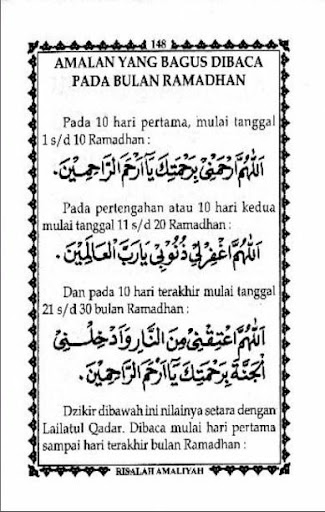 148
AMALAN YANG BAGUS DIBACA
PADA BULAN RAMADHAN
Pada 10 hari pertama, mulai tanggal
1 s/d 10 Ramadhan :
اَللّٰهُمَّ ارْحَمْنِيْ بِرَحْمَتِكَ يَآاَرْحَمَ الرَّاحِمِيْنَ.
Pada pertengahan atau 10 hari kedua
mulai tanggal 11 s/d 20 Ramadhan :
اَللّٰهُمَّ اغْفِرْلِيْ ذُنُوْبِيْ يَارَبَّ الْعَالَمِيْنَ.
Dan pada 10 hari terakhir mulai tanggal
21 s/d 30 bulan Ramadhan :
اَللّٰهُمَّ اعْتِقْنِيْ مِنَ النَّارِ وَاَدْخِلْنِيْ
الْجَنَّةَ بِرَحْمَتِكَ يَآاَرْحَمَ الرَّاحِمِيْنَ.
Dzikir dibawah ini nilainya setara dengan
Lailatul Qadar. Dibaca mulai hari pertama
sampai hari terakhir bulan Ramadhan :
RISALAH AMALIYAH